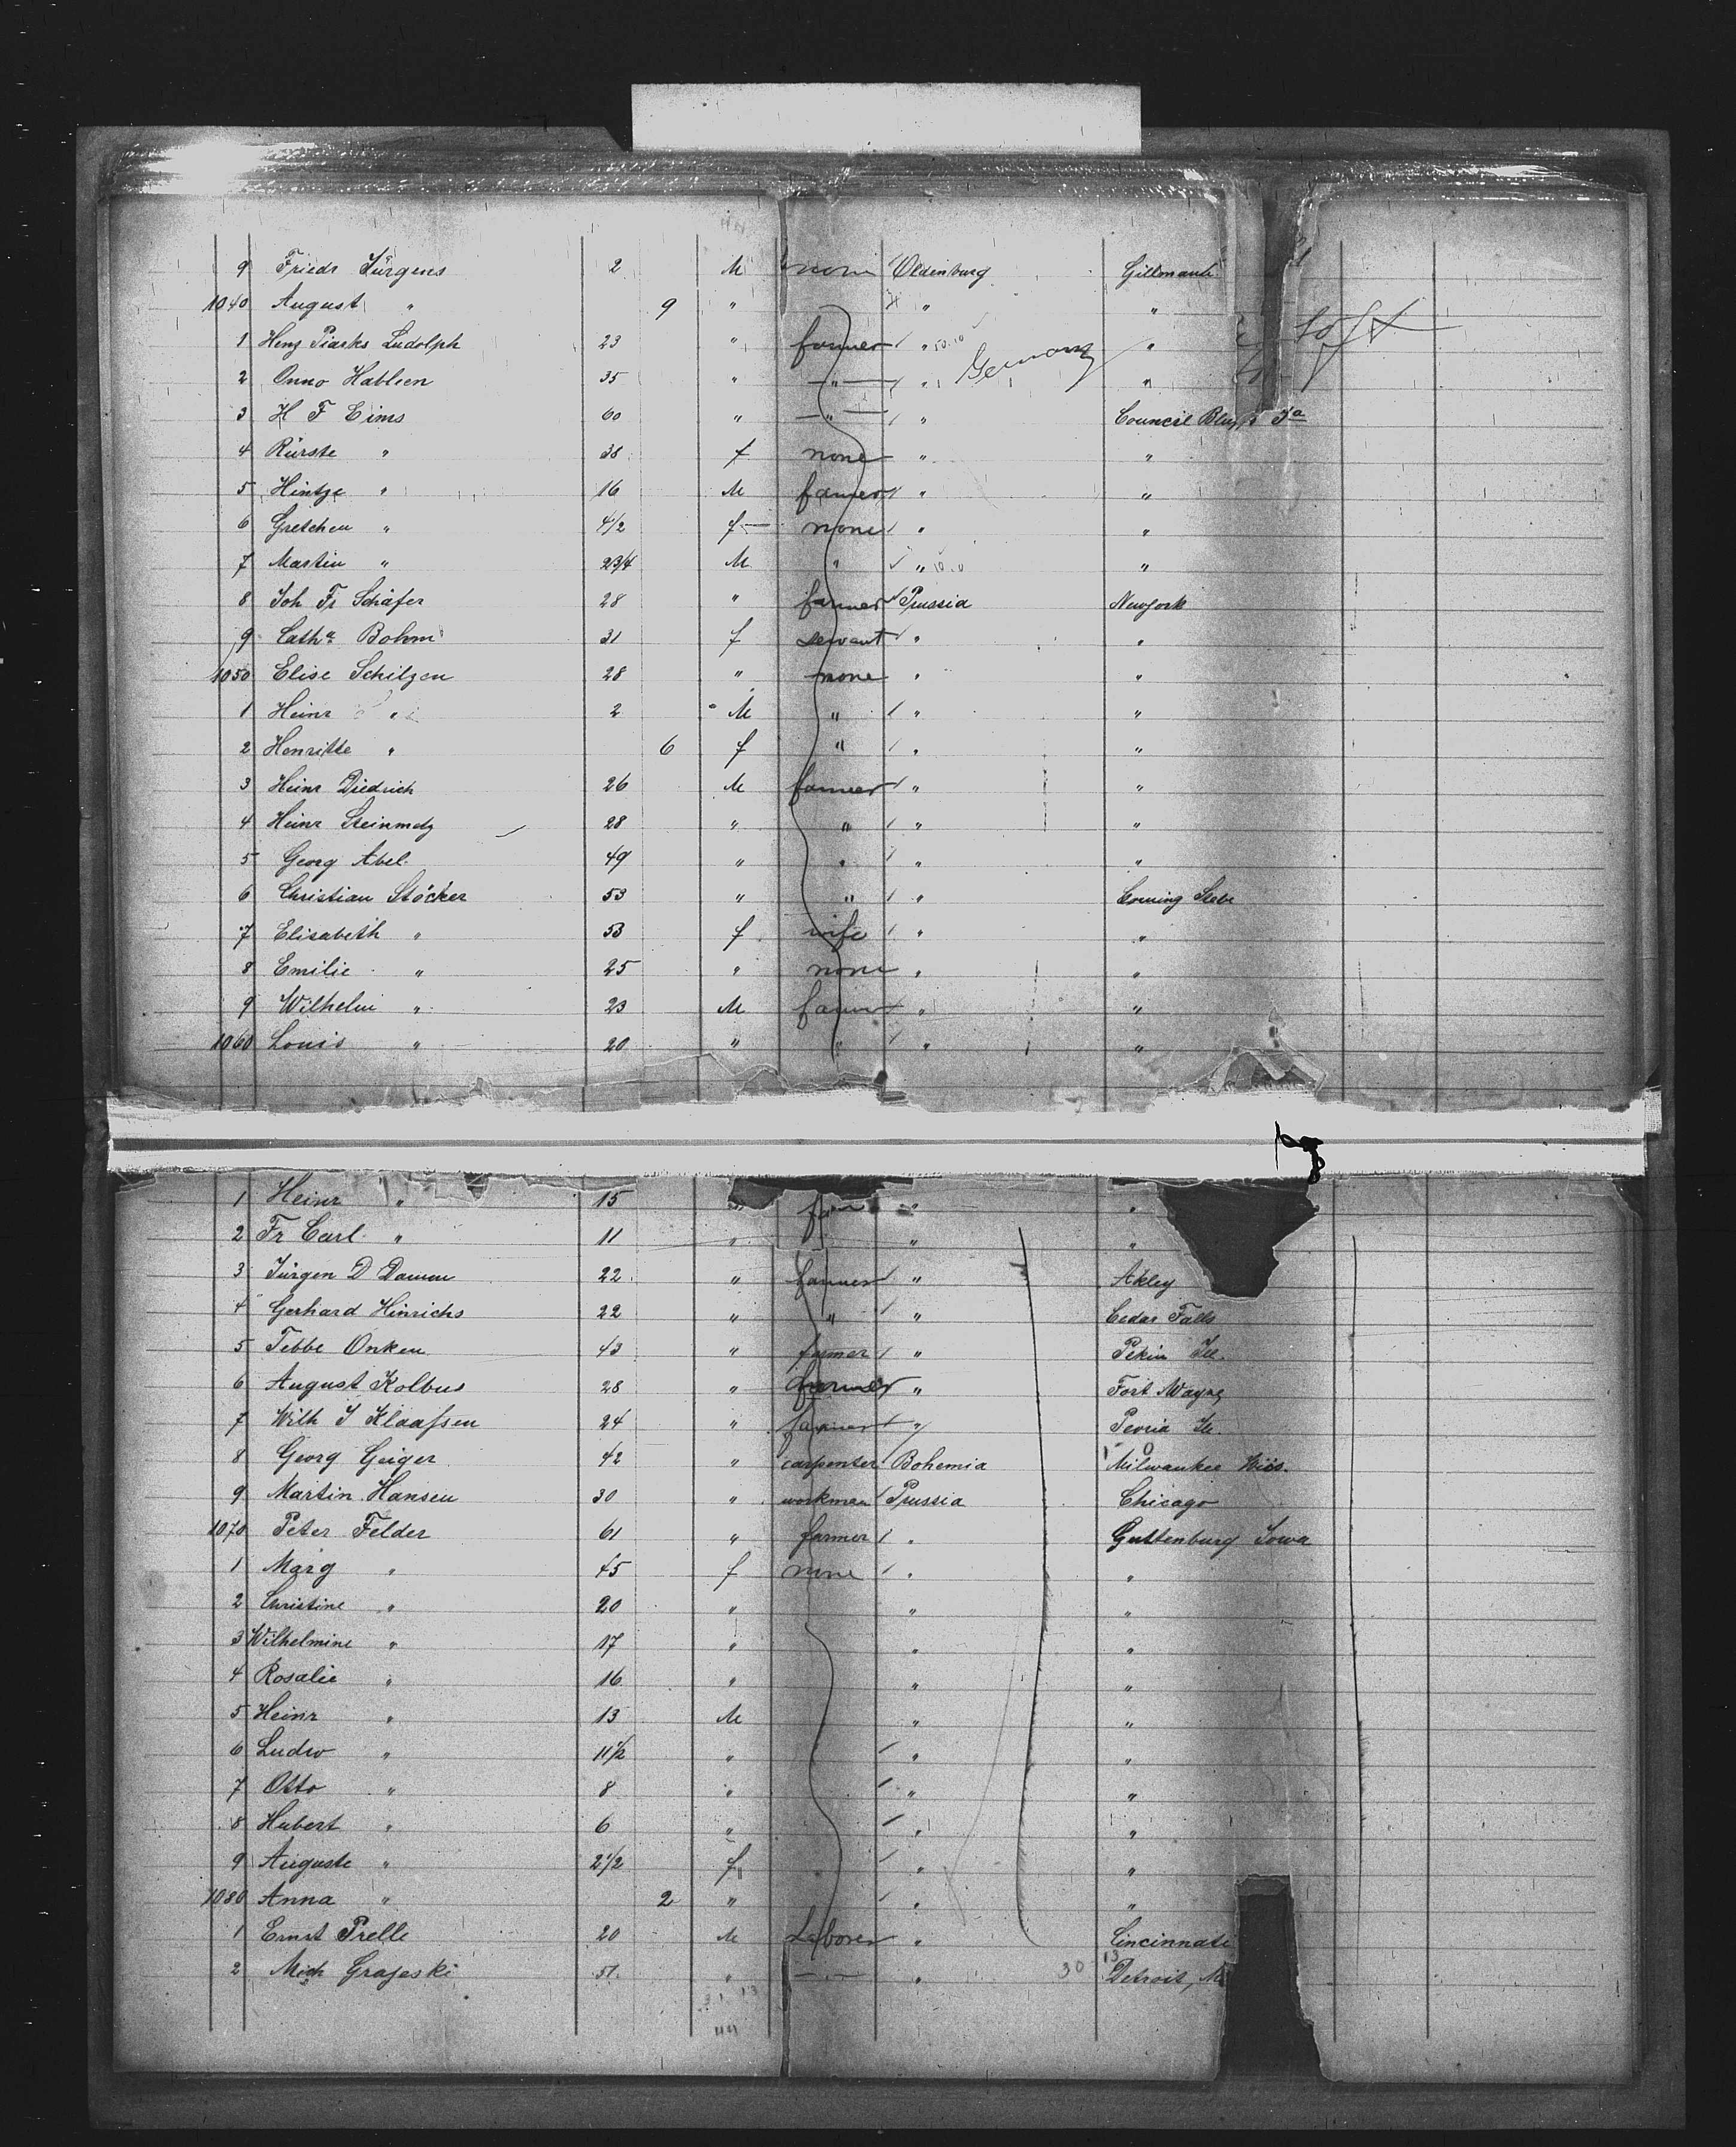 9 Friedr Jürgens 2 M none Oldenburg Gillmank
1040 August " 9 " " "
1 Hinz Piarks Ludolph 23 " farmer " Germany "
2 Onno Hablien 35 " " " "
3 H F Eims 60 " " " Council Bluffs Ia
4 Rürste " 38 f none " "
5 Hintze " 16 M farmer " "
6 Gretchen " 4 1/2 f none " "
7 Martin " 2 3/4 M " " "
8 Joh Fr Schäfer 28 " farmer Prussia Newyork
9 Catha Bohm 31 f servant " "
1050 Elise Schilzen 28 " none " "
1 Heinr " 2 M " " "
2 Henritte " 6 f " " "
3 Heinr Diedrich 26 M farmer " "
4 Heinr Steinmetz 28 " " " "
5 Georg Abel 49 " " " "
6 Christian Stöcker 53 " " "
7 Elisabeth " 53 f wife " "
8 Emilie " 25 " none " "
9 Wilhelm " 23 M farmer " "
1060 Louis " 20 " " " "
1 Heinr " 15 " " "
2 Fr Carl " 11 " " "
3 Jürgen D Damm 22 " farmer " Akley
4 Gerhard Hinrichs 22 " " " Cedar Falls
5 Tebbe Onken 43 " farmer " Pekin Ill.
6 August Kolbus 28 " farmer " Fort Wayne
7 Wilh J Klaassen 24 " farmer " Peoria Ill.
8 Georg Geiger 42 " carpenter Bohemia Milwaukee Wiis.
9 Martin Hansen 30 " workman Prussia Chicago
1070 Peter Felder 61 " farmer " Guttenburg Iowa
1 Marg " 45 f none " "
2 Christine " 20 " " "
3 Wilhelmine " 17 " " "
4 Rosalie " 16 " " "
5 Heinr " 13 M " "
6 Ludw " 11 1/2 " " "
7 Otto " 8 " " "
8 Hubert " 6 " " "
9 Auguste " 2 1/2 f " "
1080 Anna " 2 " " "
1 Ernst Prelle 20 M Laborer " Cincinnati
2 Mich Grajeski 51 " " " 30 13 Detroit, M